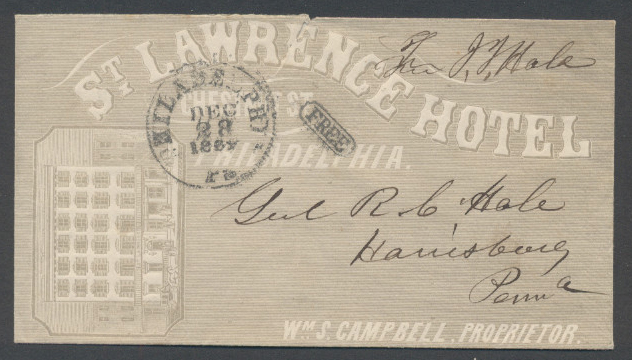 ST LAWRENCE HOTEL
CHESTNUT ST.
PHILADELPHIA.
Free J. T. Hale
PHILADELPHIA
DEC
PA
FREE
Genl R C Hale
Harrisburg
Penna
WM S. CAMPBELL, PROPRIETOR.